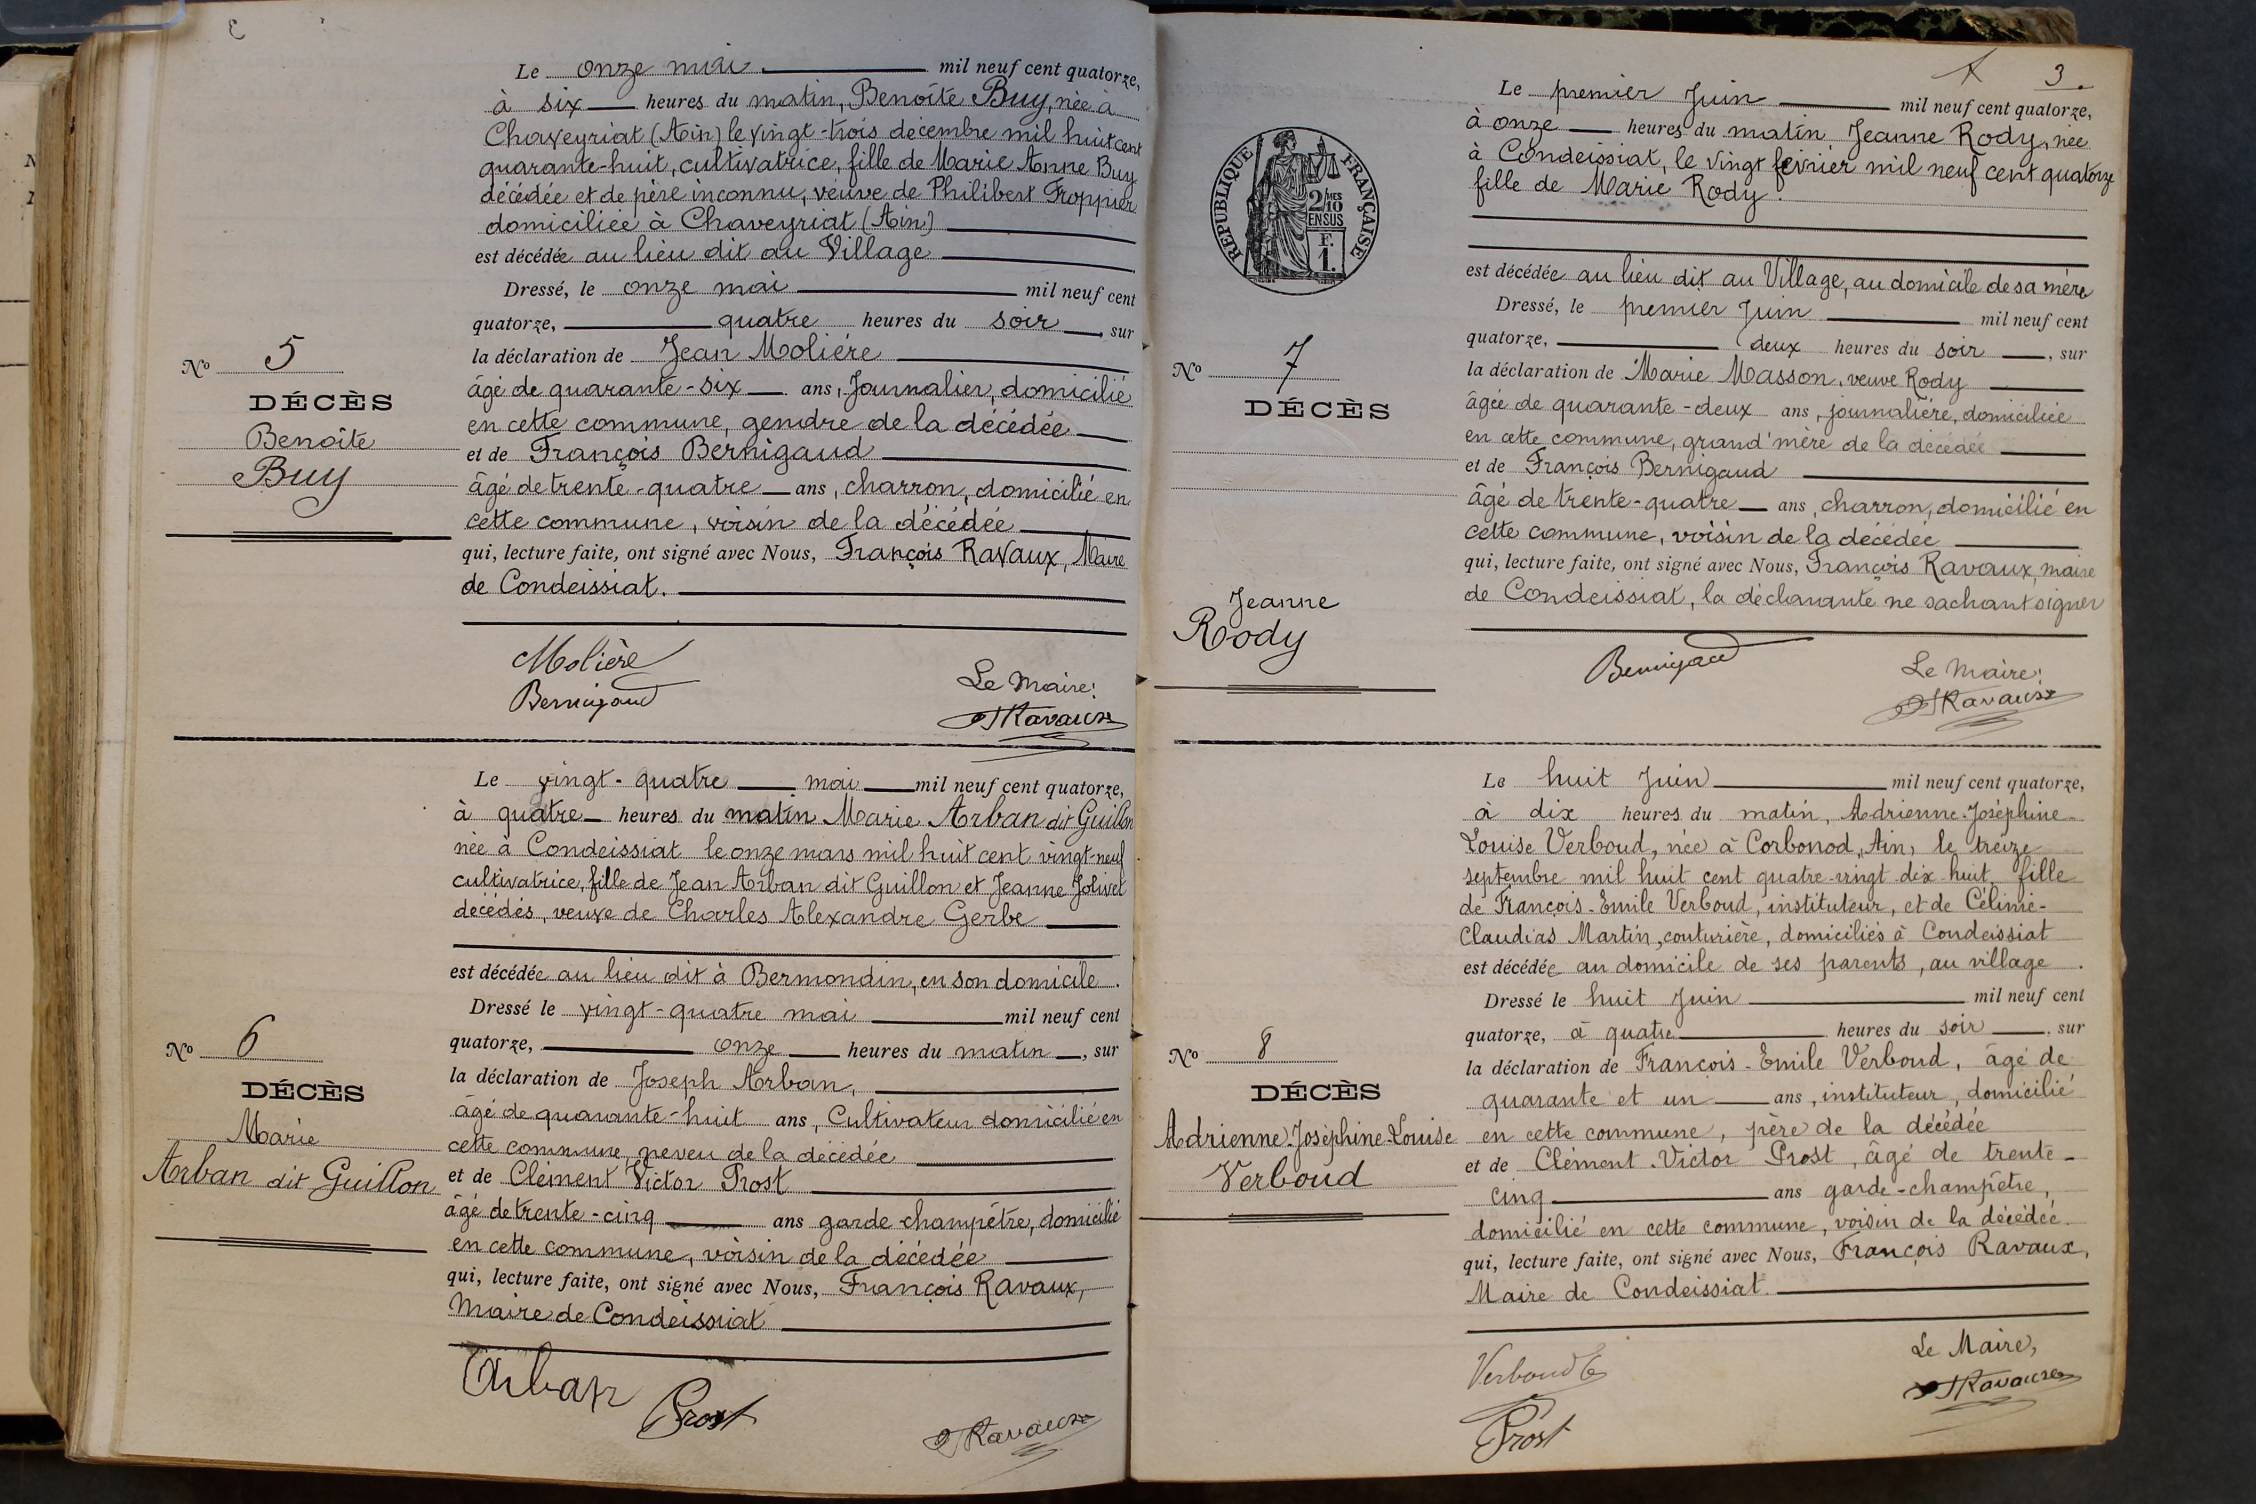 Le onze mai mil neuf cent quatorze,
à six heures du matin, Benoîte Buy, née à
Chaveyriat (Ain) le vingt-trois décembre mil huit cent
quarante-huit, cultivatrice, fille de Marie Anne Buy
décédée et de père inconnu, veuve de Philibert Froppier
domiciliée à Chaveyriat (Ain)
est décédée au lieu dit au Village
Dressé, le onze mai mil neuf cent
quatorze, quatre heures du soir, sur
la déclaration de Jean Molière
âgé de quarante-six ans, Journalier, domicilié
en cette commune, gendre de la décédée
et de François Bernigaud
âgé de trente-quatre ans, charron, domicilié en
cette commune, voisin de la décédée
qui, lecture faite, ont signé avec Nous, François Ravaux, Maire
de Condeissiat.
No 5
DÉCÈS
Benoîte
Buy
Molière
Bernigaud
Le Maire:
Ravaux
Le vingt-quatre mai mil neuf cent quatorze,
à quatre heures du matin Marie Arban dit Guillon
née à Condeissiat le onze mars mil huit cent vingt-neuf
cultivatrice, fille de Jean Arban dit Guillon et Jeanne Jolivet
décédés, veuve de Charles Alexandre Gerbe
est décédée au lieu dit à Bermondin, en son domicile.
Dressé le vingt-quatre mai mil neuf cent
quatorze, onze heures du matin, sur
la déclaration de Joseph Arban,
âgé de quarante-huit ans, Cultivateur domicilié en
cette commune, neveu de la décédée
et de Clément Victor Prost
âgé de trente-cinq ans garde champêtre, domicilié
en cette commune, voisin de la décédée
qui, lecture faite, ont signé avec Nous, François Ravaux,
Maire de Condeissiat
No 6
DÉCÈS
Marie
Arban dit Guillon
Arban
Prost
Ravaux
3.
Le premier Juin mil neuf cent quatorze,
à onze heures du matin Jeanne Rody, née
à Condeissiat, le vingt février mil neuf cent quatorze
fille de Marie Rody.
est décédée au lieu dit au Village, au domicile de sa mère
Dressé, le premier Juin mil neuf cent
quatorze, deux heures du soir, sur
la déclaration de Marie Masson, veuve Rody
âgée de quarante-deux ans, journalière, domiciliée
en cette commune, grand'mère de la décédée
et de François Bernigaud
âgé de trente-quatre ans, charron, domicilié en
cette commune, voisin de la décédée
qui, lecture faite, ont signé avec Nous, François Ravaux, maire
de Condeissiat, la déclarante ne sachant signer
RÉPUBLIQUE FRANÇAISE
2/10 MES
EN SUS
F.
1.
No 7
DÉCÈS
Jeanne
Rody
Bernigaud
Le Maire:
Ravaux
Le huit Juin mil neuf cent quatorze,
à dix heures du matin, Adrienne-Joséphine
Louise Verboud, née à Corbonod, Ain, le treize
septembre mil huit cent quatre-vingt dix-huit, fille
de François-Emile Verboud, instituteur, et de Célinie-
Claudias Martin, couturière, domiciliés à Condeissiat
est décédée au domicile de ses parents, au village.
Dressé le huit Juin mil neuf cent
quatorze, à quatre heures du soir, sur
la déclaration de François-Emile Verboud, âgé de
quarante et un ans, instituteur, domicilié
en cette commune, père de la décédée
et de Clément-Victor Prost, âgé de trente-
cinq ans garde-champêtre,
domicilié en cette commune, voisin de la décédée.
qui, lecture faite, ont signé avec Nous, François Ravaux,
Maire de Condeissiat
No 8
DÉCÈS
Adrienne-Joséphine-Louise
Verboud
Verboud E
Prost
Le Maire,
Ravaux